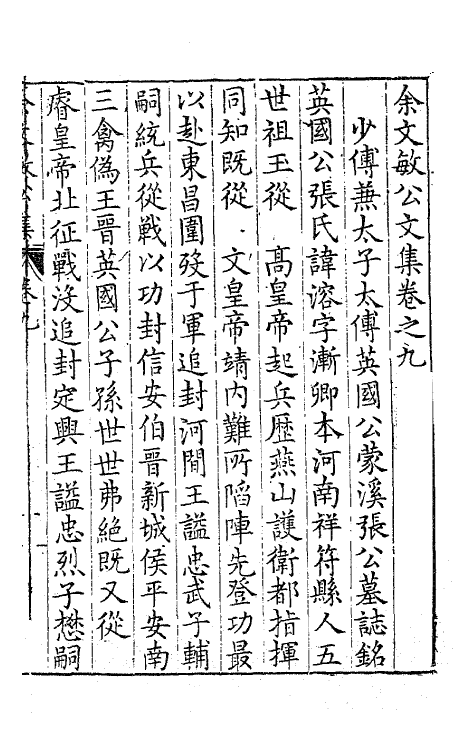 余文敏公文集卷之九
少傅蒹太子太傅英國公蒙溪張公墓誌銘
英國公張氏諱溶字漸卿本河南祥符縣人五
世祖玉從 高皇帝起兵歷燕山護衛都指揮
同知既從 文皇帝靖内難所䧟陣先登功最
以赴東昌圍歿于軍追封河間王謚忠武子輔
嗣統兵從戰以功封信安伯晉新城侯平安南
三禽偽王晉英國公子孫世世弗絶既又從
睿皇帝北征戰沒追封定興王謚忠烈子懋嗣